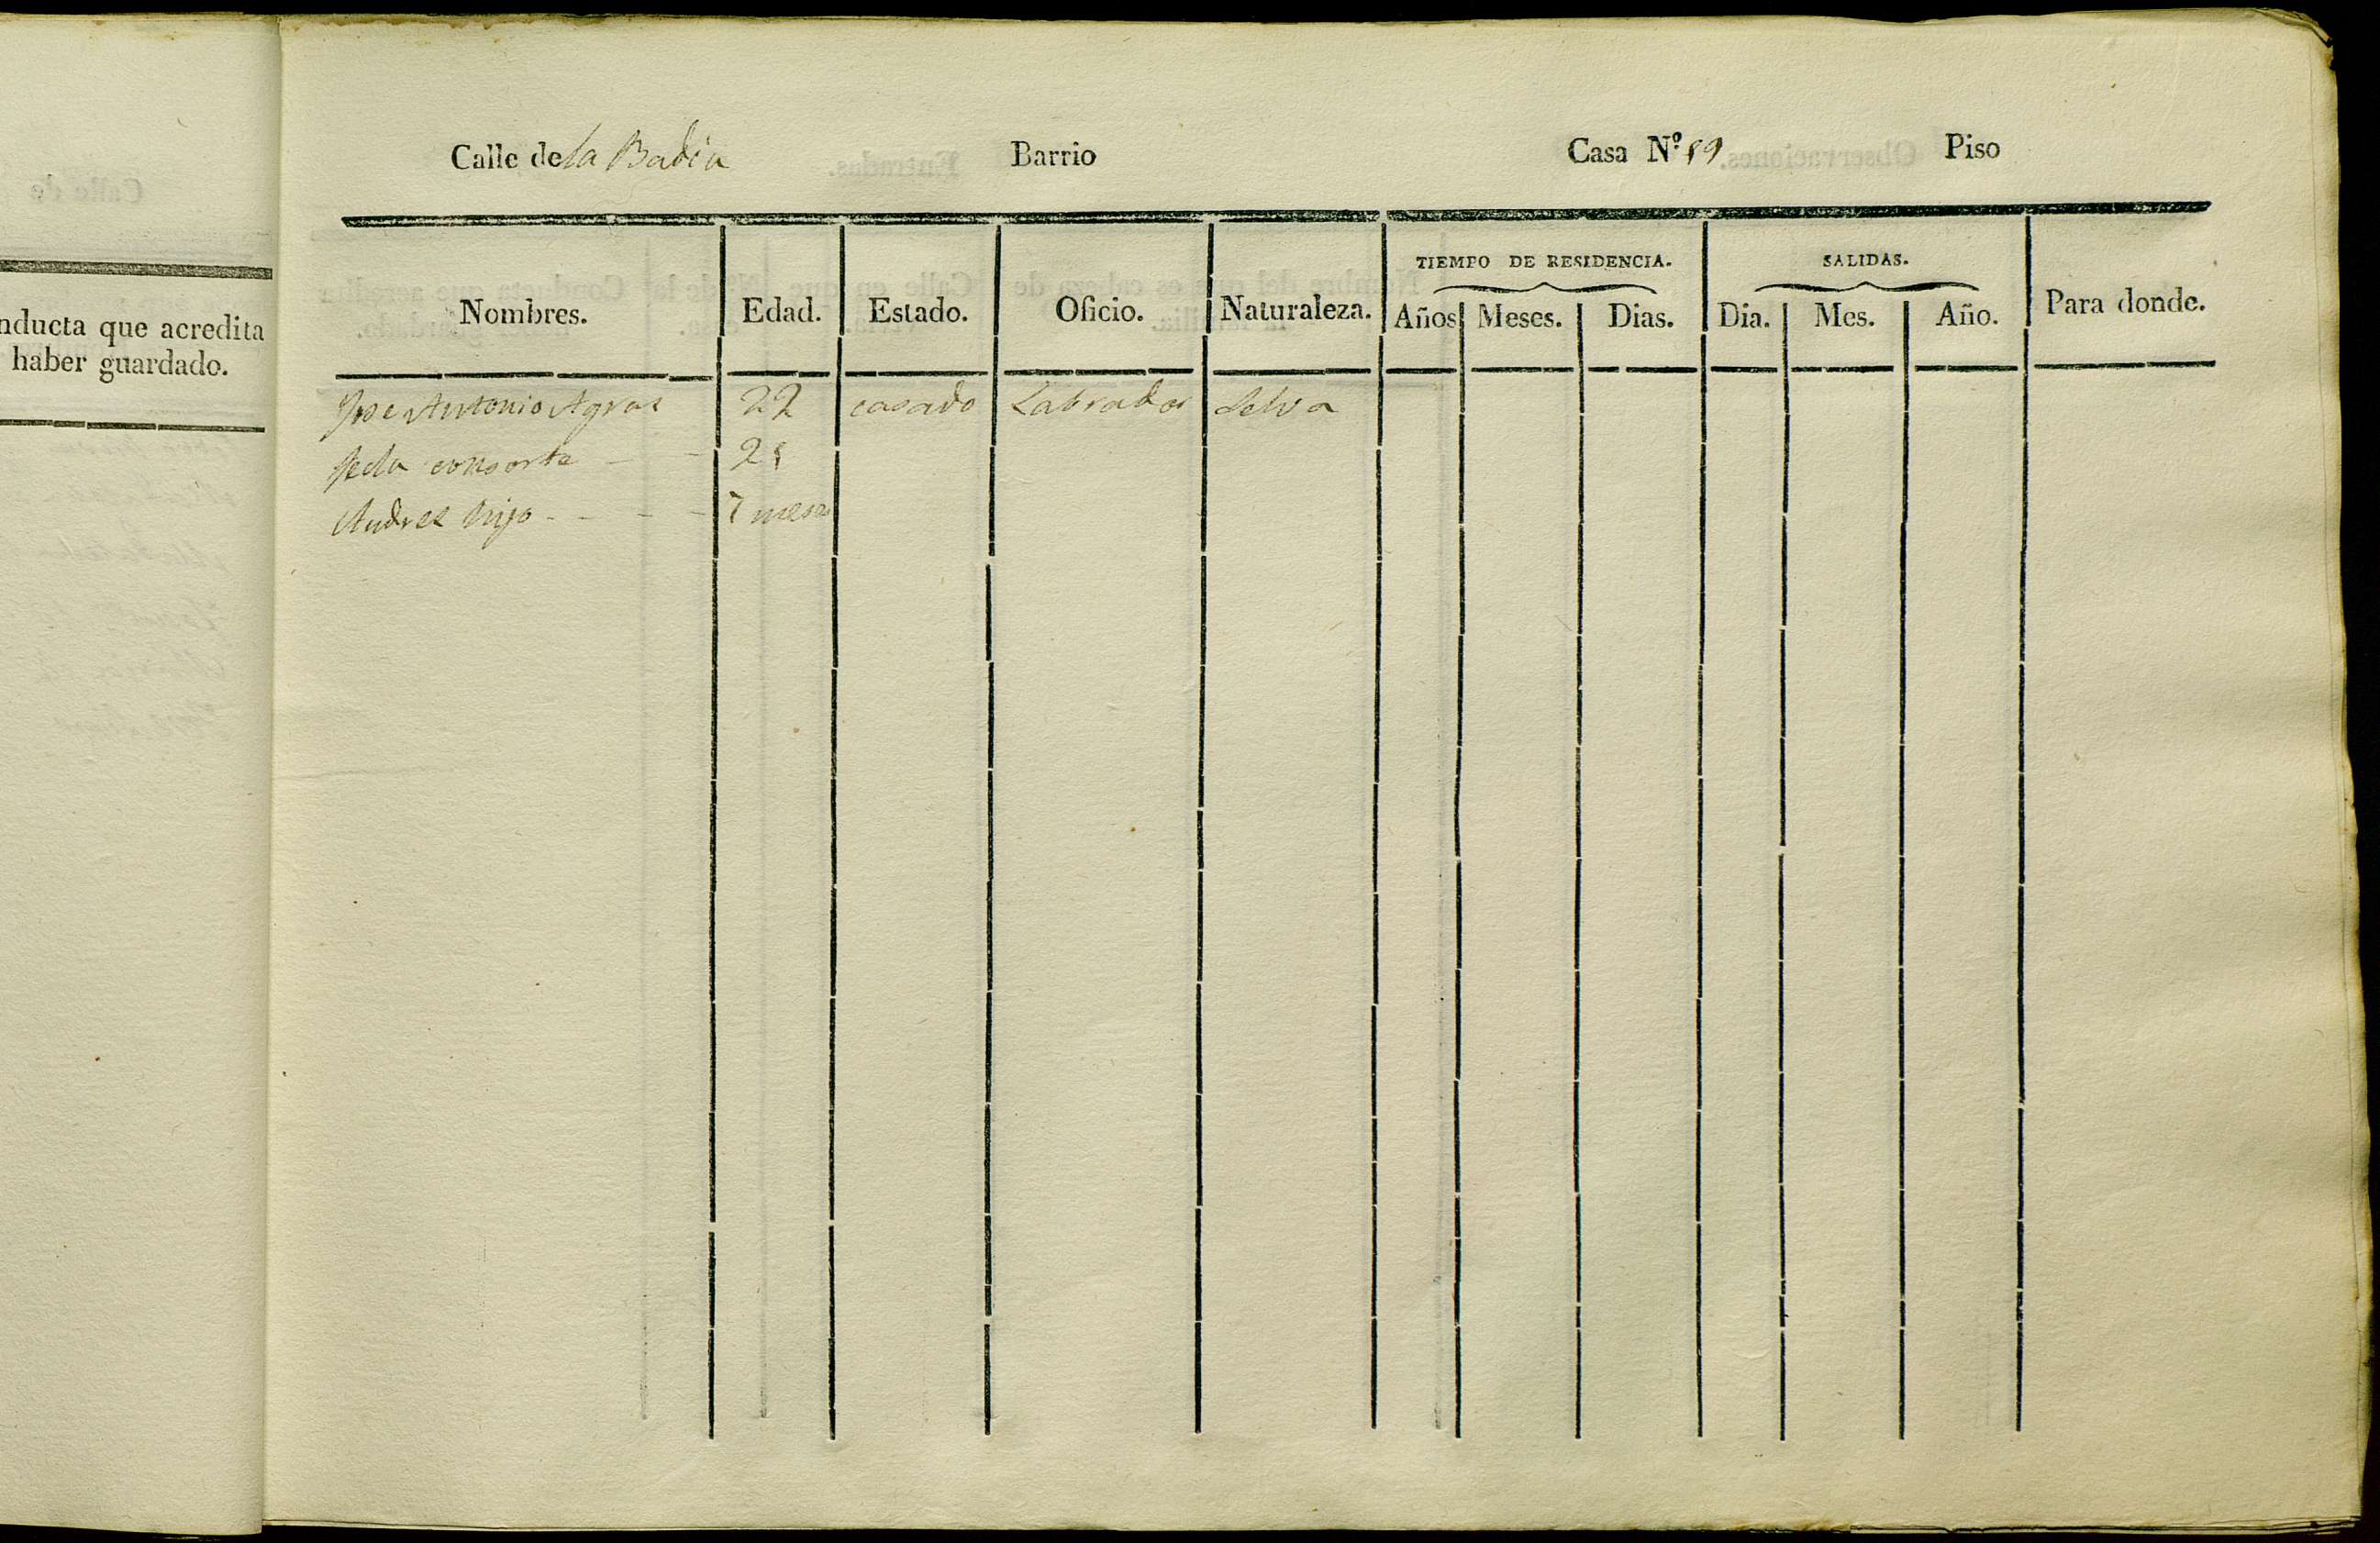 Calle de la Badia Barrio Casa N.º 59 Piso
TIEMPO DE RESIDENCIA. SALIDAS.
Nombres. Edad. Estado. Oficio. Naturaleza. Años Meses. Dias. Dia. Mes. Año. Para donde.
nducta que acredita
haber guardado.
Jose Antonio Agras 22 casado Labrador Selva
Tecla consorte - - 25
Andres hijo - - - - 7 meses